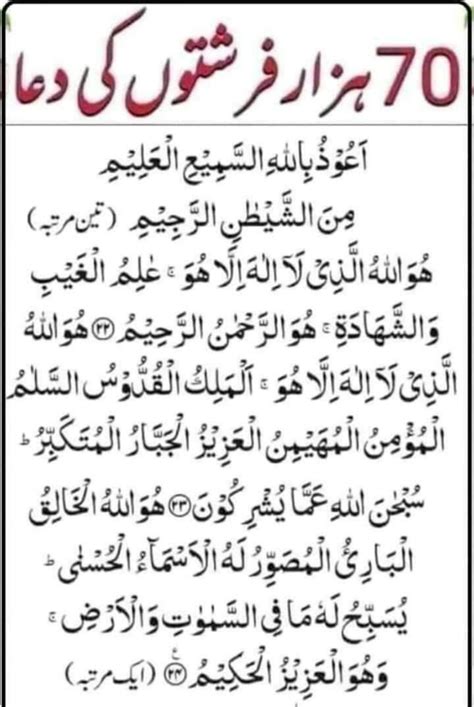 70 ہزار فرشتوں کی دعا
اَعُوْذُ بِاللهِ السَّمِيْعِ الْعَلِيْمِ
مِنَ الشَّيْطٰنِ الرَّجِيْمِ (تین مرتبہ)
هُوَ اللهُ الَّذِىْ لَآ اِلٰهَ اِلَّا هُوَ ۚ عٰلِمُ الْغَيْبِ
وَالشَّهَادَةِ ۚ هُوَ الرَّحْمٰنُ الرَّحِيْمُ ﴿۲۲﴾ هُوَ اللهُ
الَّذِىْ لَآ اِلٰهَ اِلَّا هُوَ ۚ اَلْمَلِكُ الْقُدُّوْسُ السَّلٰمُ
الْمُؤْمِنُ الْمُهَيْمِنُ الْعَزِيْزُ الْجَبَّارُ الْمُتَكَبِّرُ ؕ
سُبْحٰنَ اللهِ عَمَّا يُشْرِكُوْنَ ﴿۲۳﴾ هُوَ اللهُ الْخَالِقُ
الْبَارِئُ الْمُصَوِّرُ لَهُ الْاَسْمَآءُ الْحُسْنٰى ؕ
يُسَبِّحُ لَهٗ مَا فِى السَّمٰوٰتِ وَالْاَرْضِ ۚ
وَهُوَ الْعَزِيْزُ الْحَكِيْمُ ﴿۲۴﴾ ع (ایک مرتبہ)